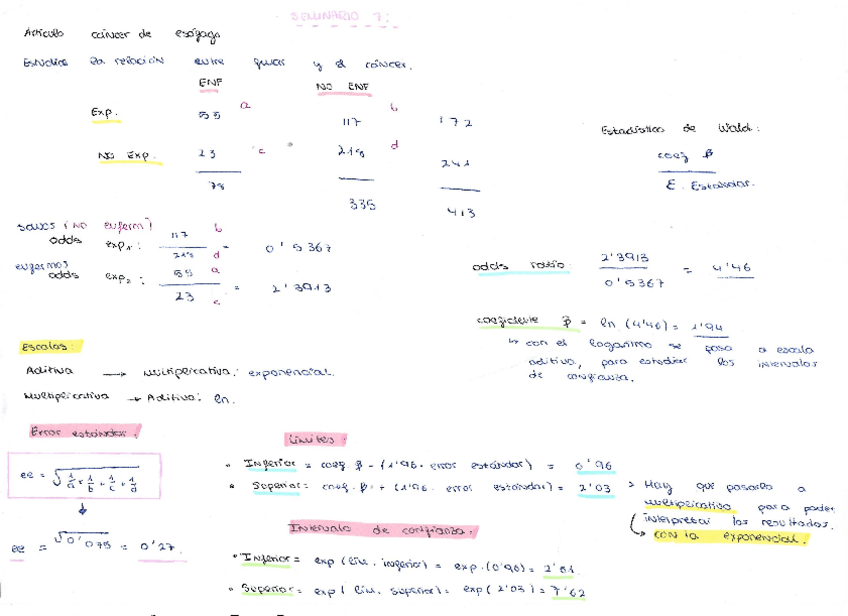 SEMINARIO 7:
Artículo cáncer de esófago
Estudia la relación entre fumar y el cáncer.
ENF NO ENF
Exp. 55 a 117 b 172
NO Exp. 23 c 218 d 241
78 335 413
Estadístico de Wald:
coef β
E. Estándar.
sanos (NO enferm)
odds exp₁: 117 b / 218 d = 0'5367
enfermos
odds exp₂: 55 a / 23 c = 2'3913
odds ratio: 2'3913 / 0'5367 = 4'46
coeficiente β = ln (4'46) = 1'94
↳ con el logaritmo se pasa a escala
aditiva, para estudiar los intervalos
de confianza.
Escalas:
Aditiva → Multiplicativa: exponencial.
Multiplicativa → Aditiva: ln.
Error estándar:
ee = √ 1/a + 1/b + 1/c + 1/d
↓
ee = √0'075 = 0'27.
Límites:
• Inferior = coef. β - (1'96 · error estándar) = 0'96
• Superior = coef. β + (1'96 · error estándar) = 2'03
> Hay que pasarlo a
multiplicativa para poder
interpretar los resultados.
↳ con la exponencial.
Intervalo de confianza:
• Inferior = exp (lím. inferior) = exp. (0'96) = 2'61
• Superior = exp (lím. superior) = exp (2'03) = 7'62